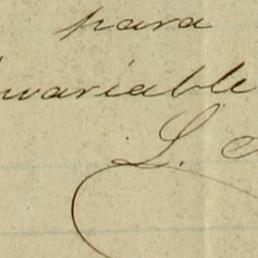 para
nvariable
L.